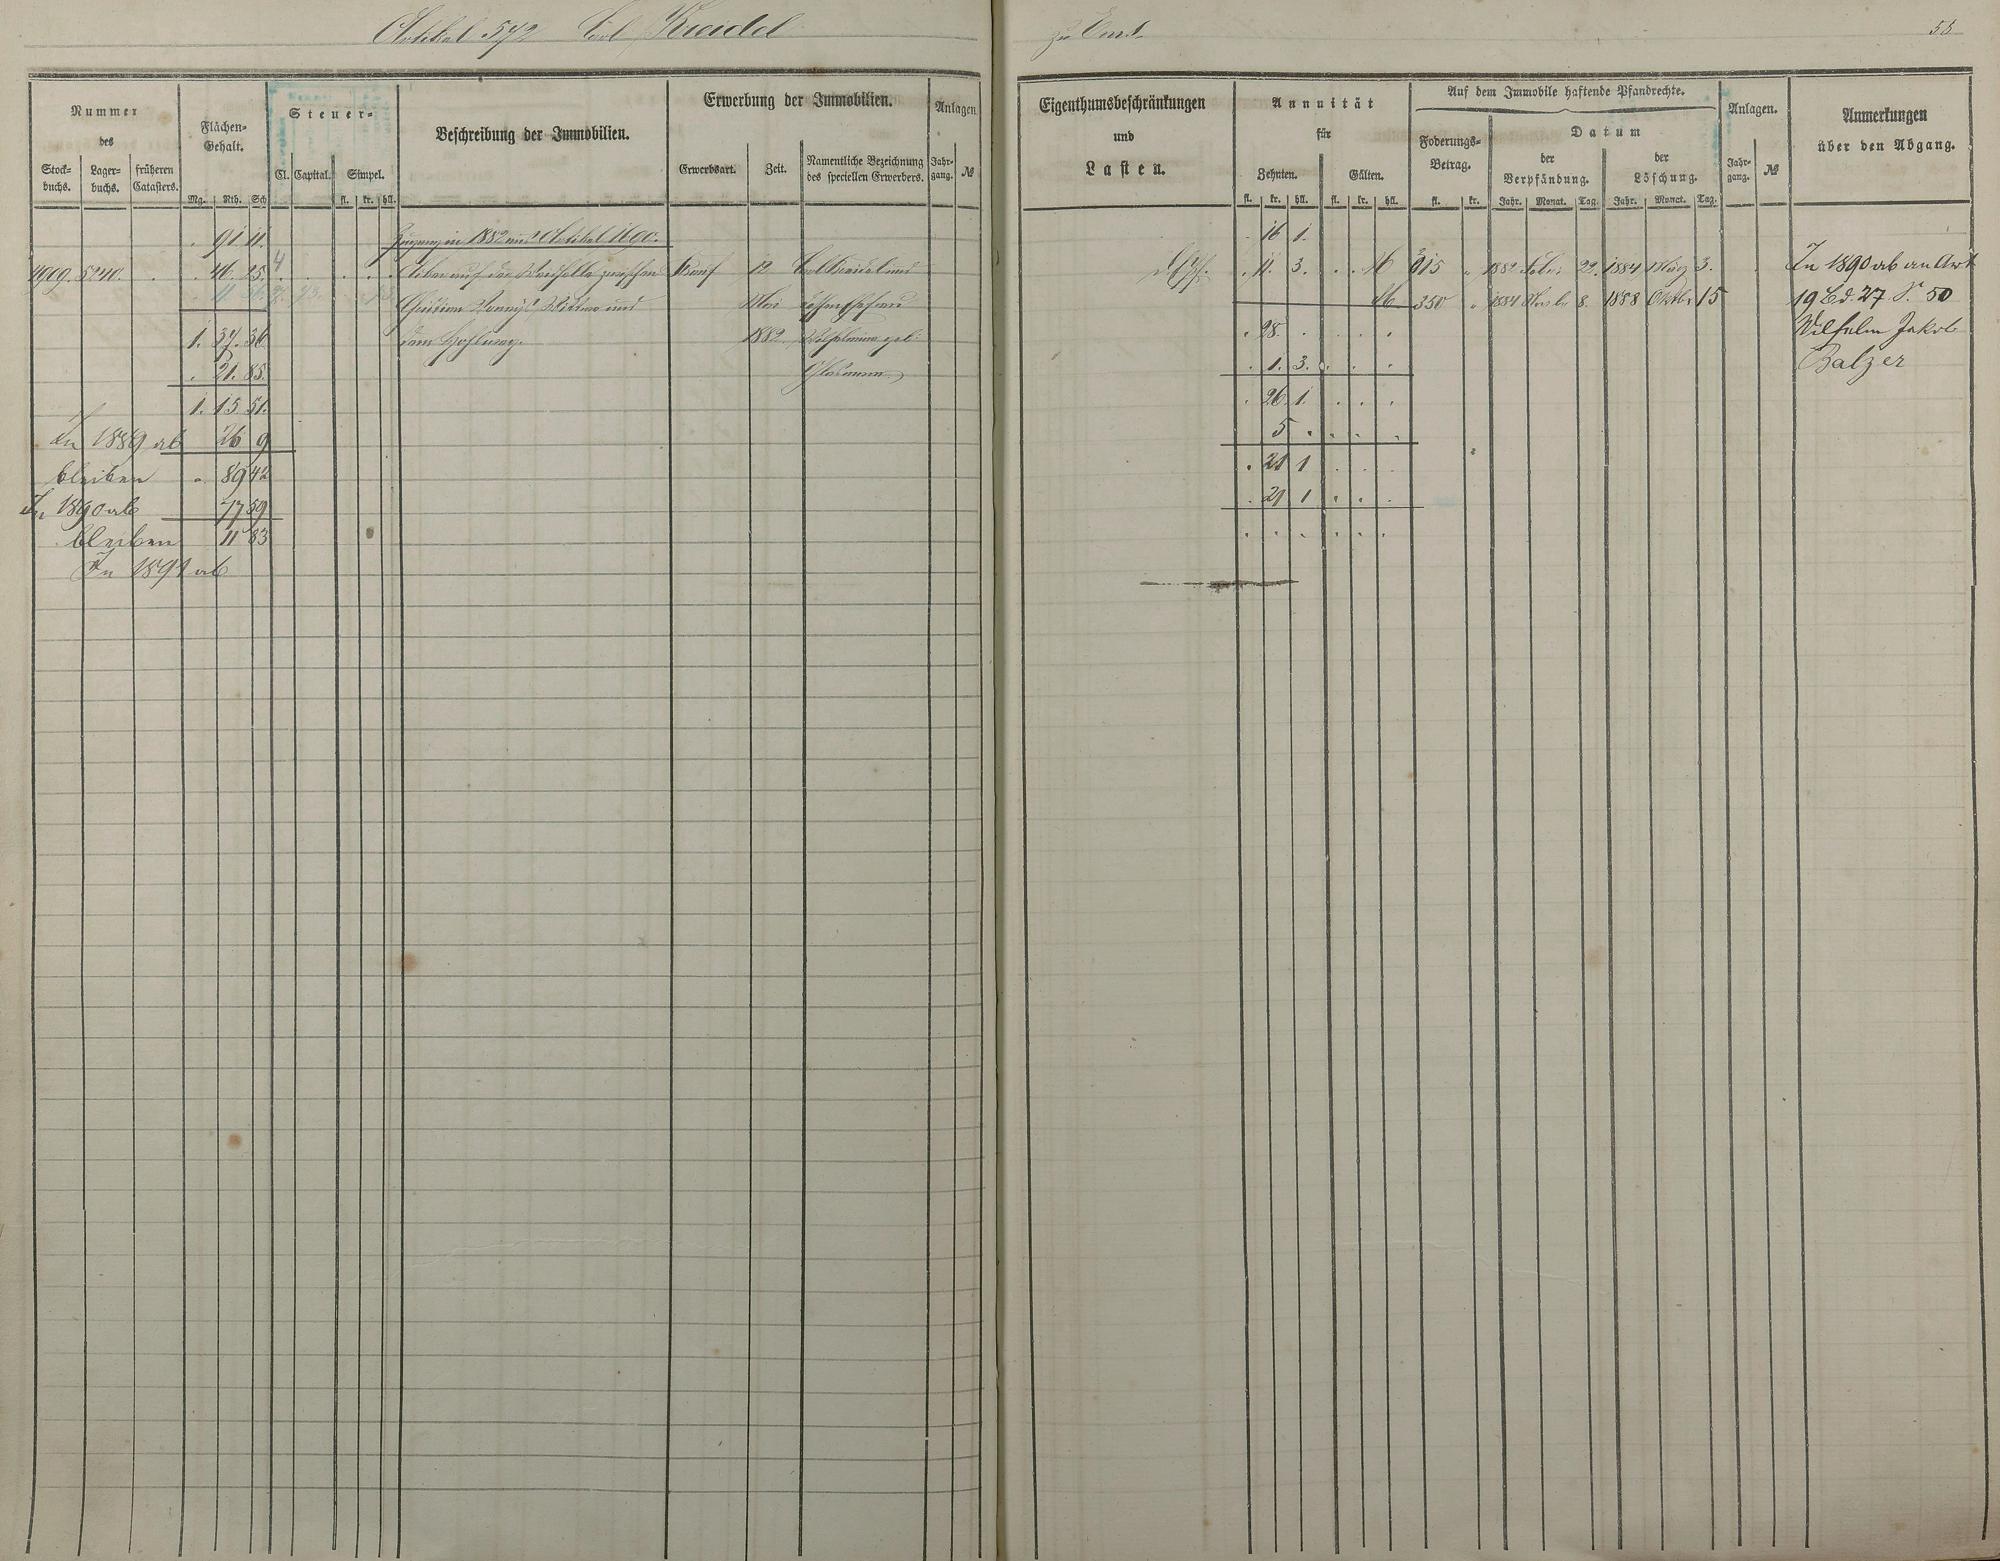 Artikel 572 Carl Kreidel
zu Ems.
55
Nummer
des
Stock-
buchs.
Lager-
buchs.
früheren
Catasters.
Flächen-
Gehalt.
Mg. Rth. Sch
Steuer-
Cl. Capital. Simpel.
fl. kr. hll.
Beschreibung der Immobilien.
Erwerbung der Immobilien.
Erwerbsart. Zeit.
Namentliche Bezeichnung
des speciellen Erwerbers.
Anlagen
Jahr-
gang. №
Eigenthumsbeschränkungen
und
Lasten.
Annuität
für
Zehnten. Gülten.
fl. kr. hll. fl. kr. hll.
Auf dem Immobile haftende Pfandrechte.
Foderungs-
Betrag.
fl. kr.
Datum
der
Verpfändung.
der
Löschung.
Jahr. Monat. Tag. Jahr. Monat. Tag.
Anlagen.
Jahr-
gang. №
Anmerkungen
über den Abgang.
. 91 11. Zugang in 1882 aus Artikel 1690.
4909. 5240. . . 46. 25. 4 . . . . Acker auf der zwischen Kauf 12 Carl Kreidel und
Christian Wittwe und Mai dessen Ehefrau
1. 37. 36 dem Hohlweg. 1882 Wilhelmine geb:
. 21. 85.
1. 15. 51.
In 1889 ab 26 9
bleiben " 89 42
In 1890 ab 77 59
bleiben 11 83
In 1891 ab
. 16 1.
. 11. 3. . . 16 615 " 1882 Febr. 22. 1884 März 3.
16 350 " 1884 8. 1888 Oktbr 15
. 28. . . . .
. 1. 3. . . .
. 26. 1. . . .
5 . . . .
. 21 1 . . .
. 21 1 . . .
. . . . . .
In 1890 ab an Art
19 Bd. 27 S. 50
Wilhelm Jakob
Balzer